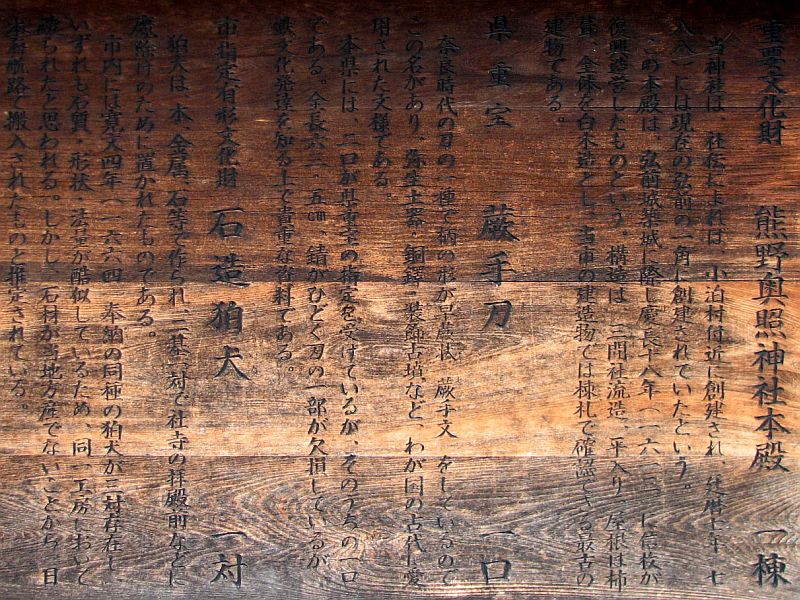 重要文化財 熊野奥照神社本殿 一棟
当神社は、社伝によれば、小泊村付近に創建され、延暦七年 七
八八 には現在の弘前の一角に創建されていたという。
この本殿は、弘前城築城に際し慶長十八年（一六一三）に信枚が
復興造営したものという。構造は、三間社流造、平入り、屋根は柿
葺、全体を白木造とし、当市の建造物では棟札で確認できる最古の
建物である。
県重宝 蕨手刀 一口
奈良時代の刀の一種で柄の形が早蕨状 蕨手文 をしているので
この名があり、弥生土器、銅鐸、装飾古墳など、わが国の古代に愛
用された文様である。
本県には、二口が県重宝の指定を受けているが、そのうちの一口
である。全長六二・五㎝、錆がひどく刃の一部が欠損しているが
鉄文化発達を知る上で貴重な資料である。
市指定有形文化財 石造狛犬 一対
狛犬は、木、金属、石等で作られ、二基一対で社寺の拝殿前などに
魔除けのために置かれたものである。
市内には寛文四年（一六六四 奉納の同種の狛犬が三対存在し、
いずれも石質・形状・法量が酷似しているため、同一工房において
彫られたと思われる。しかし、石材が当地方産でないことから、日
本海航路で搬入されたものと推定されている。